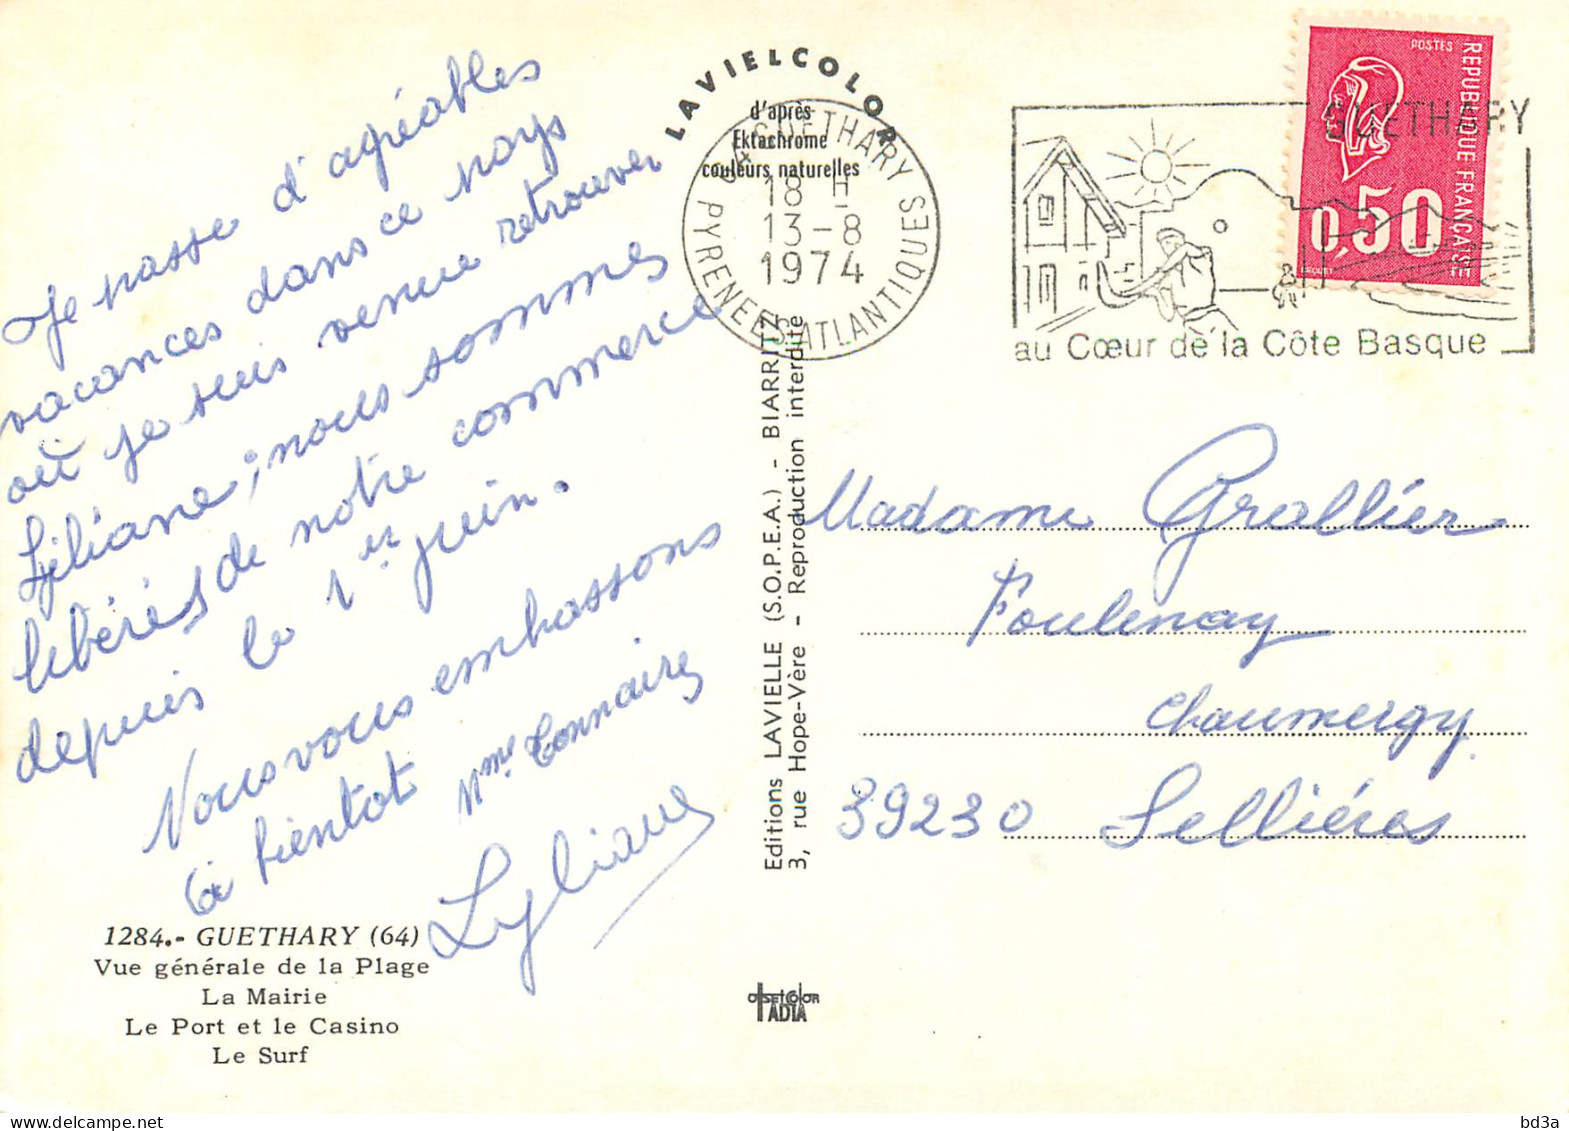 Je passe d'agréables
vacances dans ce pays
où je suis venue retrouver
Lyliane, nous sommes
libérés de notre commerce
depuis le 1er juin.
Nous vous embrassons
à bientot Mme Connaires
Lyliane
1284.- GUETHARY (64)
Vue générale de la Plage
La Mairie
Le Port et le Casino
Le Surf
LAVIELCOLOR
d'après
Ektachrome
couleurs naturelles
64 GUETHARY
18 H
13-8
1974
PYRENEES ATLANTIQUES
Editions LAVIELLE (S.O.P.E.A.) - BIARRITZ
3, rue Hope-Vère - Reproduction interdite
OFFSETCOLOR
IADIA
POSTES
REPUBLIQUE FRANÇAISE
0,50
GUETHARY
au Cœur de la Côte Basque
Madame Grallier
Foulenay
Chaumergy
39230 Sellières
bd3a